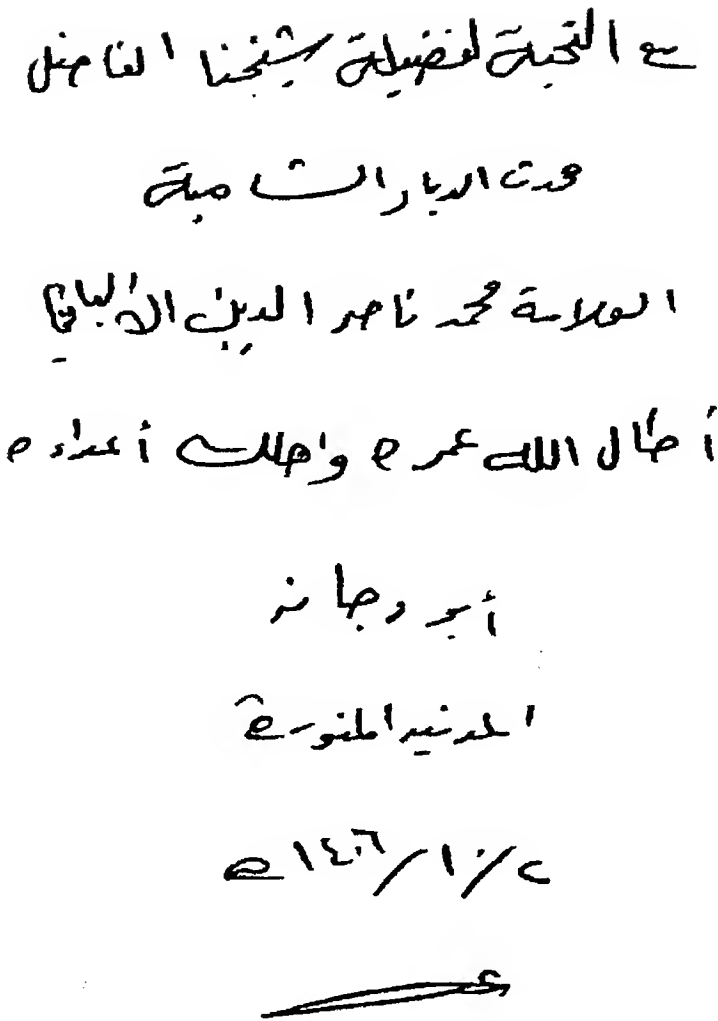 مع التحية لفضيلة شيخنا الفاضل
محدث الديار الشامية
العلامة محمد ناصر الدين الألباني
أطال الله عمره وأهلك أعداءه
المدينة المنورة
٢/١٠/١٤٠٦ هـ